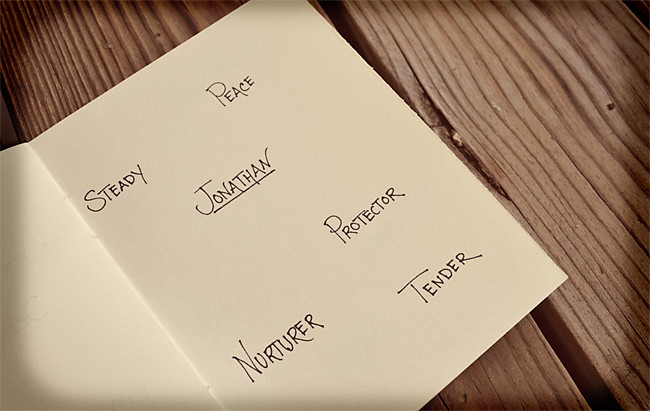 Peace
Steady
Jonathan
Protector
Tender
Nurturer